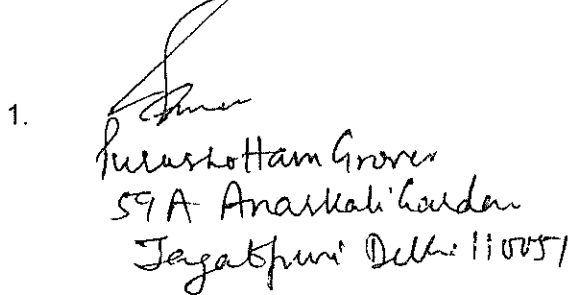 1.
Purushottam Grover
59A Anarkali Garden
Jagatpuri Delhi 110051